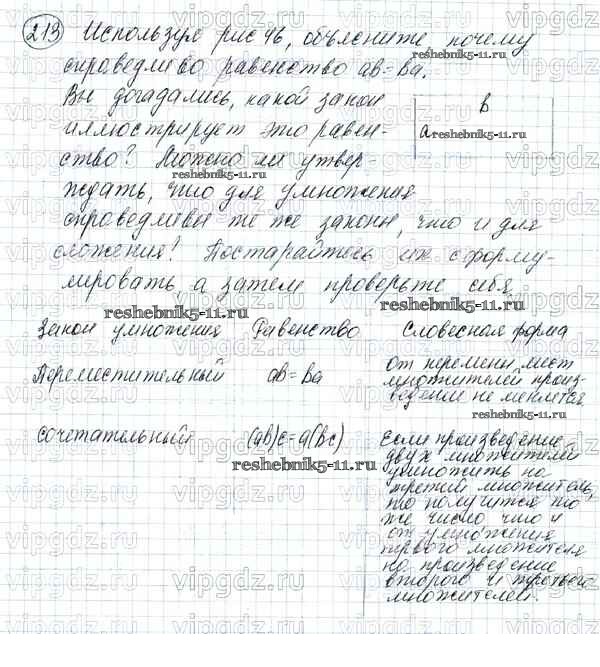 213 Используя рис 46, объясните почему
справедливо равенство ab = ba.
Вы догадались, какой закон
иллюстрирует это равен-
ство? Можно ли утвер-
ждать, что для умножения
справедливы те же законы, что и для
сложения? Постарайтесь их сформу-
лировать, а затем проверьте себя
b
a
Закон умножения Равенство Словесная форма
Переместительный ab = ba от перемены мест
множителей произ-
ведение не меняется
сочетательный (ab)c = a(bc) Если произведение
двух множителей
умножить на
третий множитель,
то получится то
же число, что и
от умножения
первого множителя
на произведение
второго и третьего
множителей.
reshebnik5-11.ru
reshebnik5-11.ru
reshebnik5-11.ru
reshebnik5-11.ru
reshebnik5-11.ru
reshebnik5-11.ru
reshebnik5-11.ru
vipgdz.ru